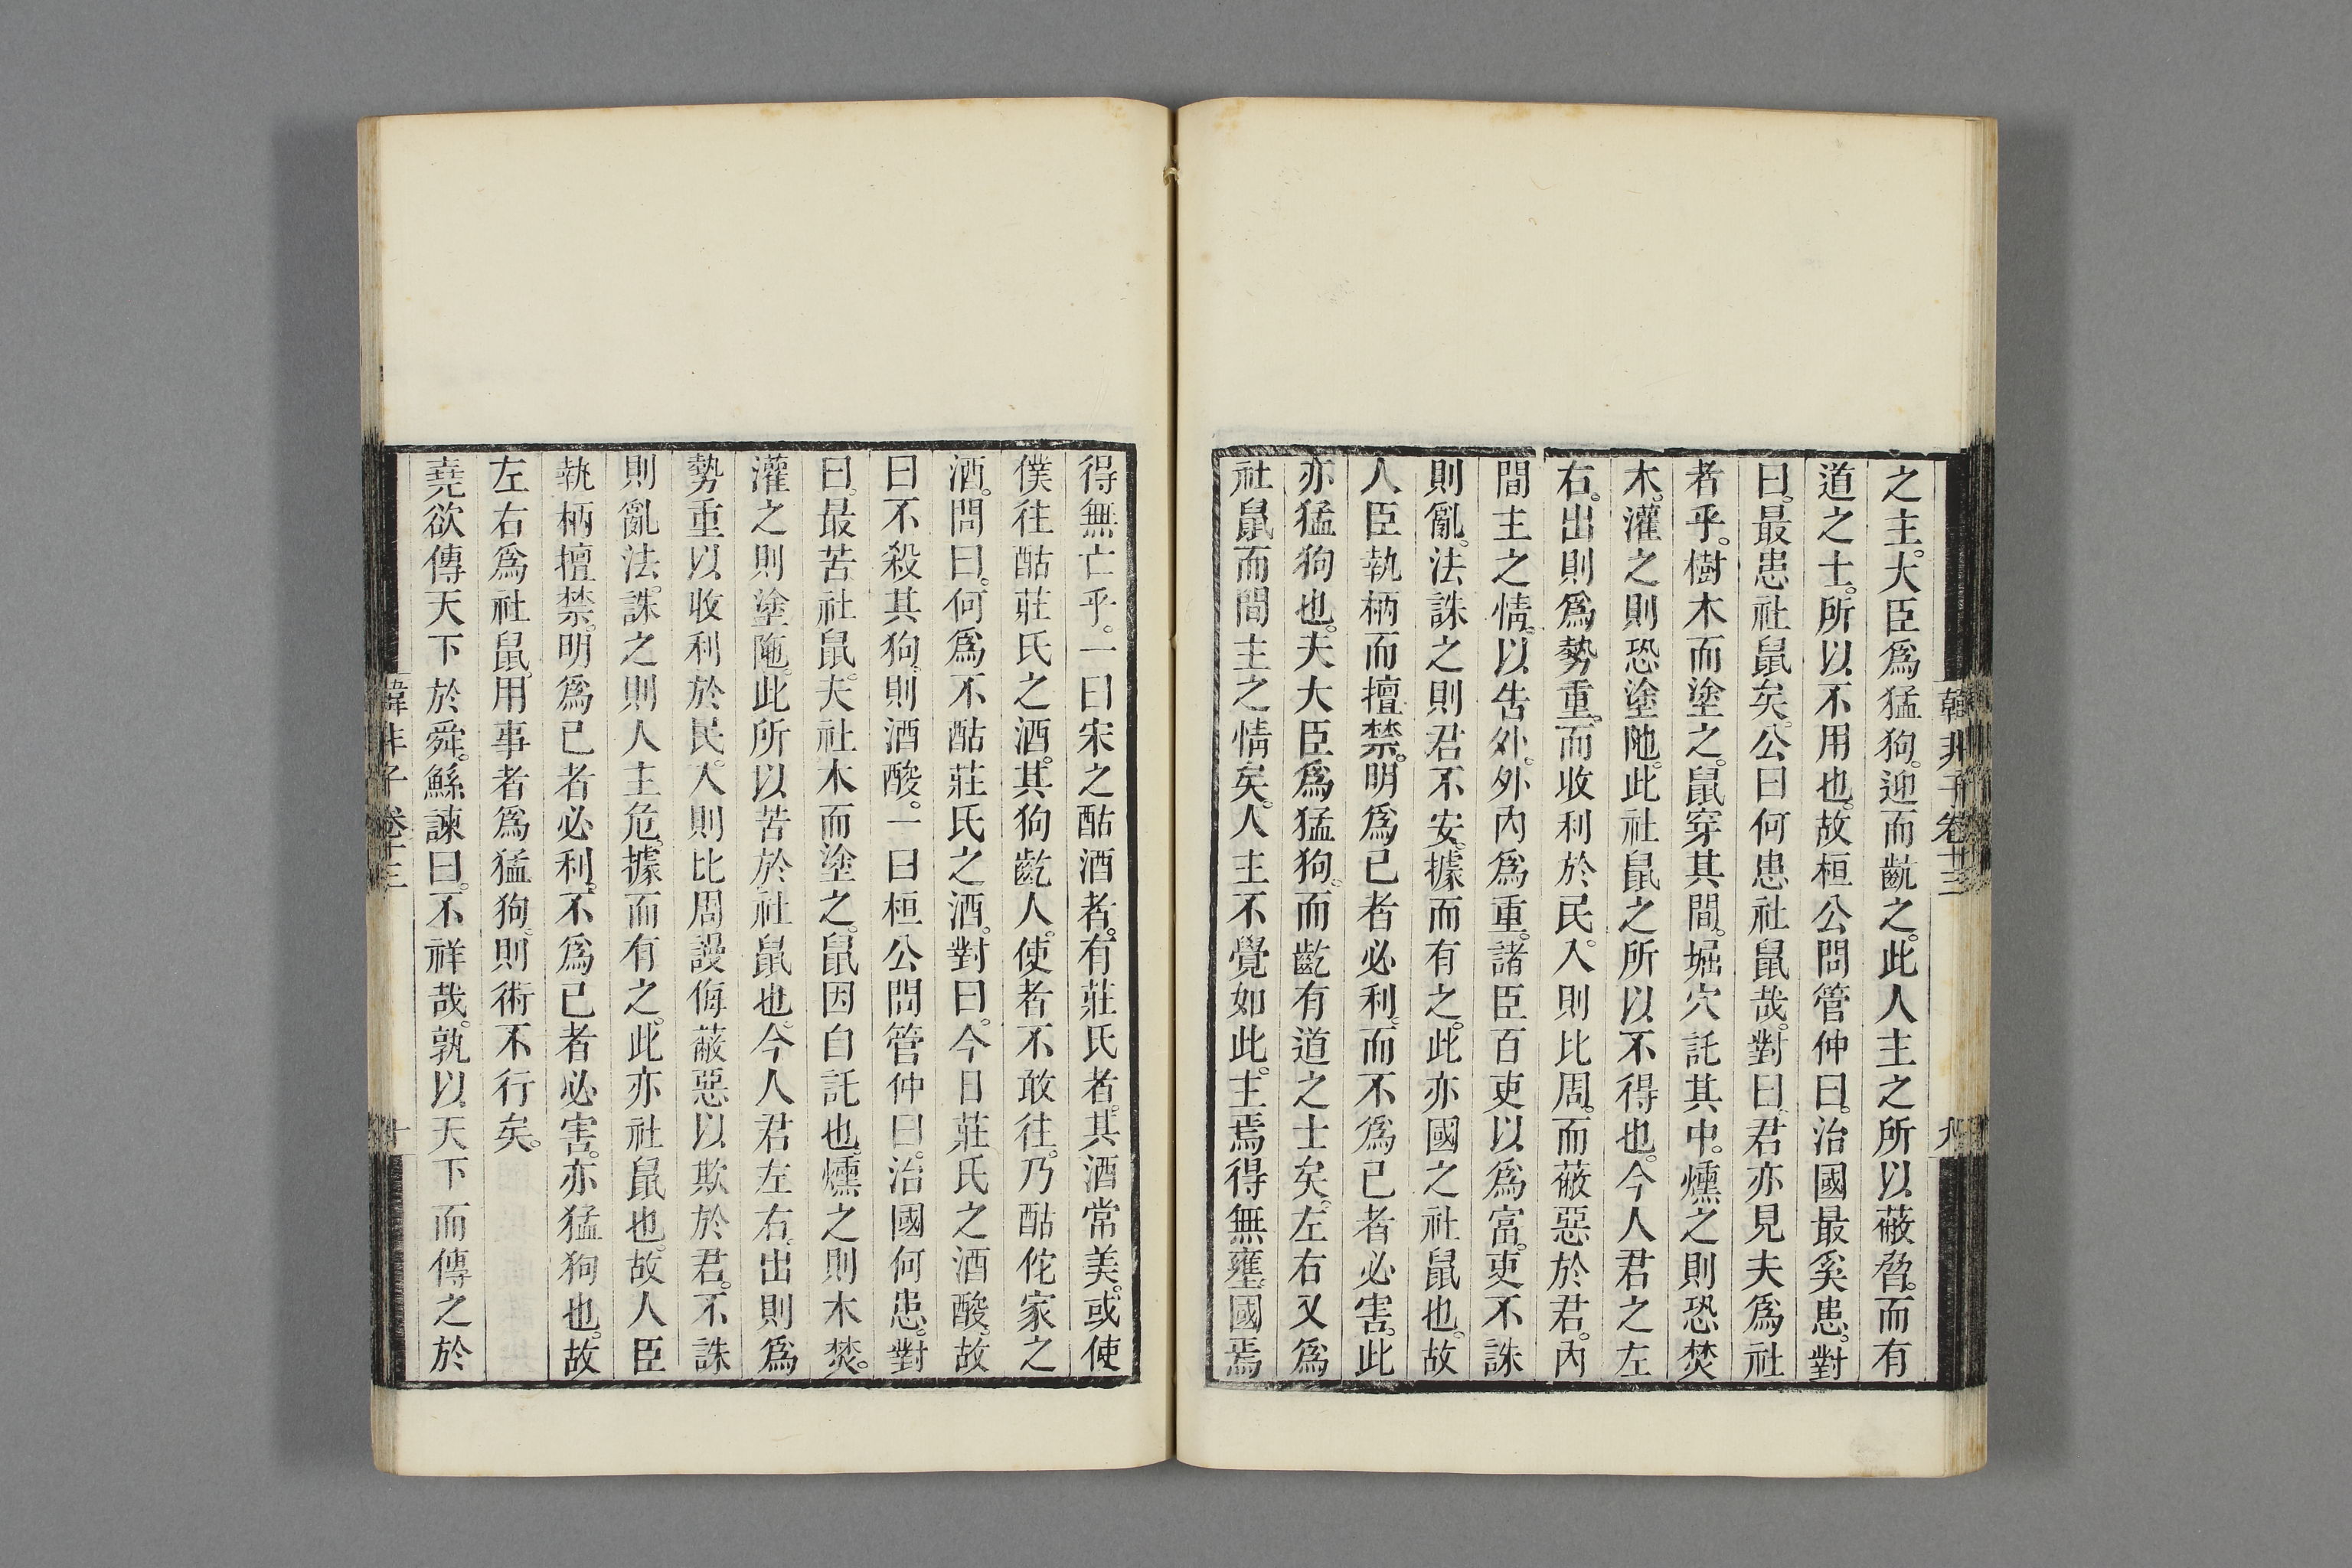 韓非子卷十三
九
之主。大臣爲猛狗。迎而齕之。此人主之所以蔽脅。而有
道之士。所以不用也。故桓公問管仲曰。治國最奚患。對
曰。最患社鼠矣。公曰何患社鼠哉。對曰。君亦見夫爲社
者乎。樹木而塗之。鼠穿其間。堀穴託其中。燻之則恐焚
木。灌之則恐塗阤。此社鼠之所以不得也。今人君之左
右。出則爲勢重。而收利於民。入則比周。而蔽惡於君。內
間主之情。以告外。外內爲重。諸臣百吏以爲富。吏不誅
則亂。法誅之則君不安。據而有之。此亦國之社鼠也。故
人臣執柄而擅禁。明爲已者必利。而不爲已者必害。此
亦猛狗也。夫大臣爲猛狗。而齕有道之士矣。左右又爲
社鼠而間主之情矣。人主不覺如此。主焉得無壅。國焉
得無亡乎。一曰宋之酤酒者。有莊氏者。其酒常美。或使
僕往酤莊氏之酒。其狗齕人。使者不敢往。乃酤佗家之
酒。問曰。何爲不酤莊氏之酒。對曰。今日莊氏之酒酸。故
曰不殺其狗。則酒酸。一曰桓公問管仲曰。治國何患。對
曰。最苦社鼠。夫社木而塗之。鼠因自託也。燻之則木焚。
灌之則塗阤。此所以苦於社鼠也。今人君左右。出則爲
勢重以收利於民。入則比周謾侮蔽惡以欺於君。不誅
則亂法。誅之則人主危。據而有之。此亦社鼠也。故人臣
執柄擅禁。明爲已者必利。不爲已者必害。亦猛狗也。故
左右爲社鼠。用事者爲猛狗。則術不行矣。
堯欲傳天下於舜。鯀諫曰。不祥哉。孰以天下而傳之於
韓非子卷十三
十